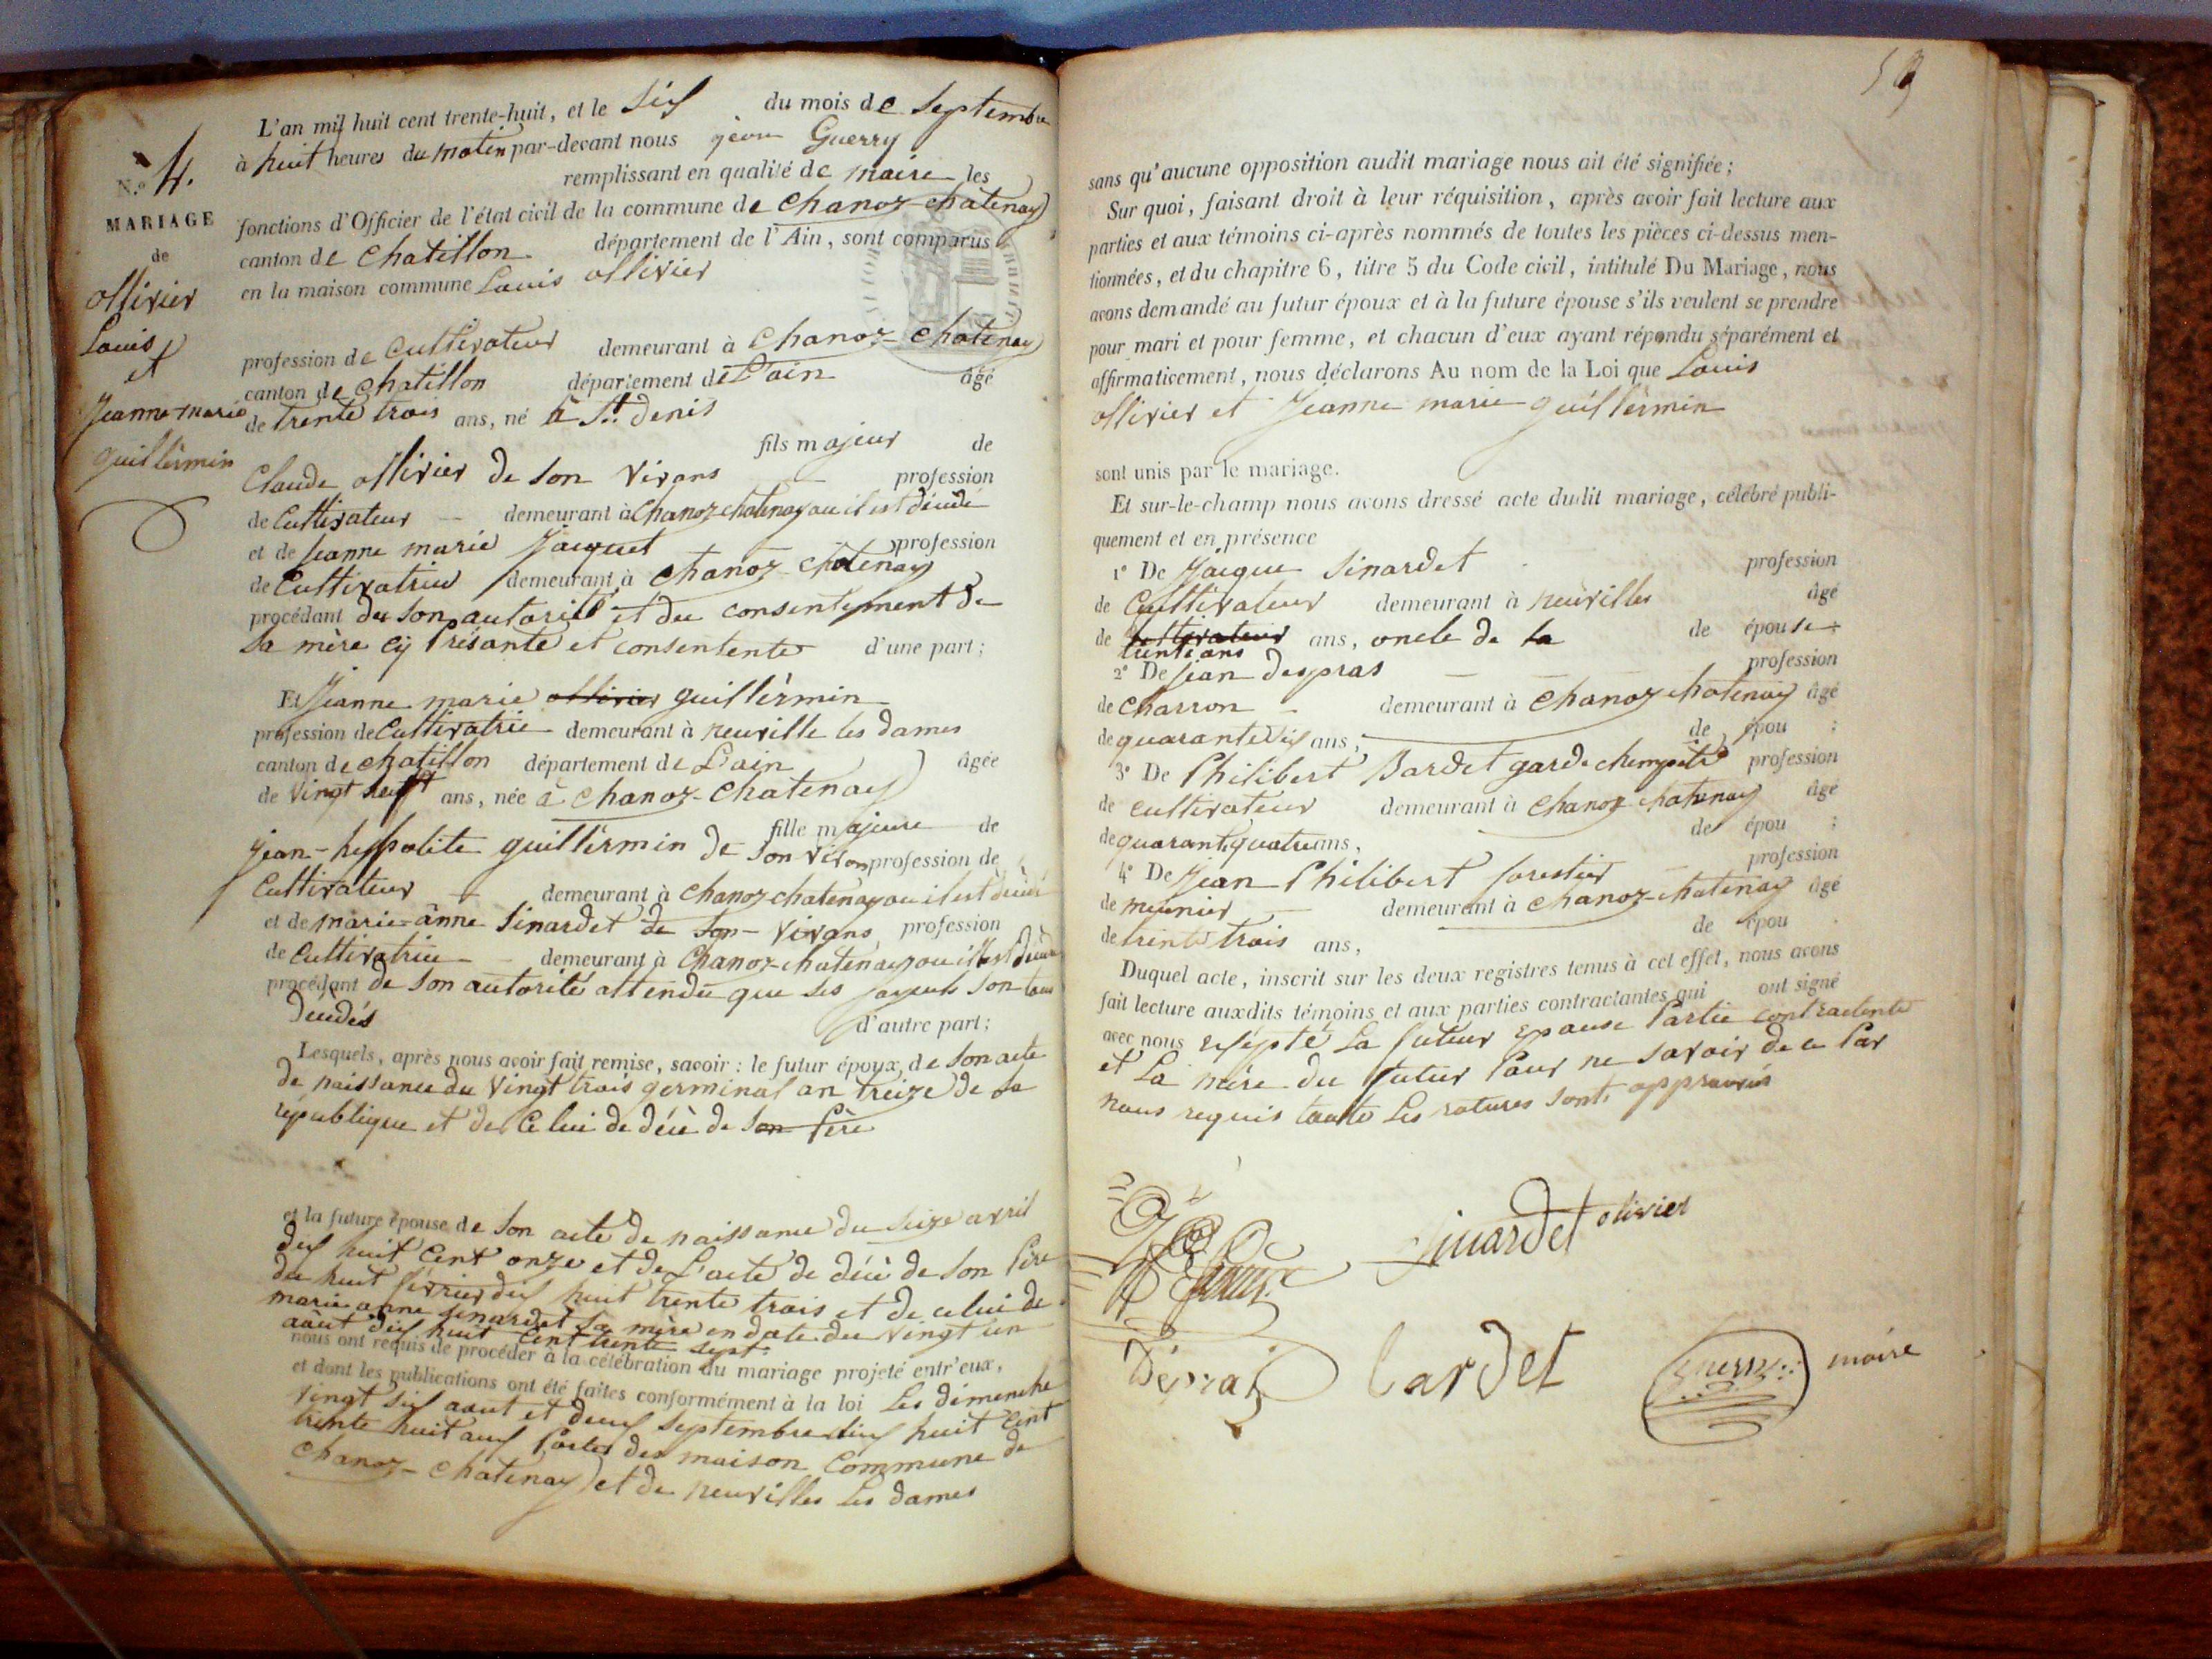 N.° 4.
MARIAGE
de
ollivier
Louis
et
Jeanne-marie
guillèrmin
L'an mil huit cent trente-huit, et le six du mois de septembre
à huit heures du matin par-devant nous jean Guerry
remplissant en qualité de maire les
fonctions d'Officier de l'état civil de la commune de chanoz-chatenay
canton de chatillon département de l'Ain, sont comparus
en la maison commune Louis ollivier
profession de cultivateur demeurant à chanoz-chatenay
canton de chatillon département de L'ain âgé
de trente trois ans, né à St. denis
fils majeur de
Claude ollivier de son vivans profession
de Cultivateur demeurant à chanoz chatenay ou il est décédé
et de jeanne marie jacquet profession
de Cultivatrice demeurant à chanoz-chatenay
procédant de son autorité et du consentement de
sa mère cÿ présante et consentente d'une part;
Et jeanne marie ollivier guillèrmin
profession de Cultivatrice demeurant à neuville les dames
canton de chatillon département de L'ain âgée
de vingt sept ans, née à chanoz-chatenay
fille majeure de
jean-heppolite guillèrmin de son vivans profession de
Cultivateur demeurant à chanoz chatenay ou il est décédé
et de marie-ânne sinardet de son-vivans profession
de Cultivatrice demeurant à chanoz-chatenay ou ill est décédé
procédant de son autorité attendu que ses son tous
décédés d'autre part;
Lesquels, après nous avoir fait remise, savoir: le futur époux, de son acte
de naissance du vingt trois germinal an treize de la
république et de Celui de décè de son père
et la future épouse de son acte de naissance du seize avril
dix huit Cent onze et de L'acte de décè de son père
du huit février dix huit trente trois et de celui de
marie anne sinardet sa mère en date du vingt un
août dix huit Cent trente sept.
nous ont requis de procéder à la célébration du mariage projeté entr'eux,
et dont les publications ont été faites conformément à la loi Les dimenche
vingt six aout et deux septembre dix huit Cent
trente huit aux portes des maison Commune de
chanoz-chatenay et de neuvilles Les dames
59
sans qu'aucune opposition audit mariage nous ait été signifiée;
Sur quoi, faisant droit à leur réquisition, après avoir fait lecture aux
parties et aux témoins ci-après nommés de toutes les pièces ci-dessus men-
tionnées, et du chapitre 6, titre 5 du Code civil, intitulé Du Mariage, nous
avons demandé au futur époux et à la future épouse s'ils veulent se prendre
pour mari et pour femme, et chacun d'eux ayant répondu séparément et
affirmativement, nous déclarons Au nom de la Loi que Louis
ollivier et jeanne marie guillèrmin
sont unis par le mariage.
Et sur-le-champ nous avons dressé acte dudit mariage, célébré publi-
quement et en présence
1° De Jacque Sinardet profession
de Cultivateur demeurant à neuvilles âgé
de cultivateur ans, oncle de la de épouse;
trente ans
2° De jean despras profession
de charron demeurant à chanoz chatenay âgé
de quarante six ans, de épou ;
3° De Philibert Bardet garde chempetre profession
de cultivateur demeurant à chanoz chatenay âgé
de quarante quatre ans, de épou ;
4° De jean Philibert forestier profession
de meunier demeurant à chanoz-chatenay âgé
de trente trois ans, de épou .
Duquel acte, inscrit sur les deux registres tenus à cet effet, nous avons
fait lecture auxdits témoins et aux parties contractantes qui ont signé
avec nous exsépté La futeur epouse Partie contractente
et La mère du futur Pour ne savoir de ce Par
nous requis toute Les ratures sont approuvés
Sinardet olivier
Dépras Bardet Guerry maire